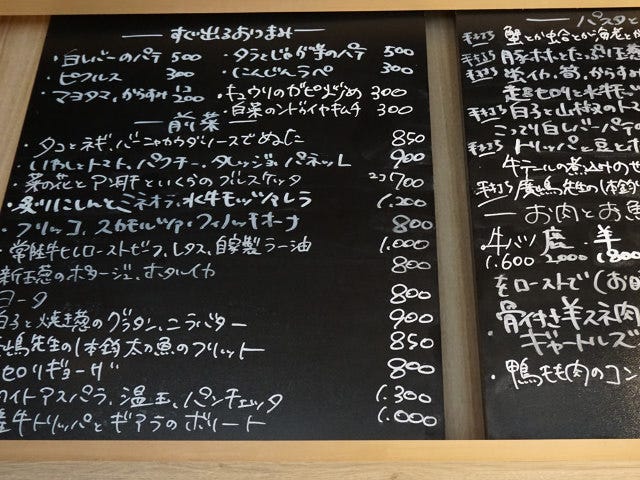 ― すぐ出るおつまみ ―
・白レバーのパテ 500
・タラとじゃが芋のパテ 500
・ピクルス 300
・にんじんラペ 300
・マヨタマ、からすみ 200
・キュウリのガピ炒め 300
・白菜のンドゥイヤキムチ 300
― 前菜 ―
・タコとネギ、バーニャカウダソースでぬるに 850
・いわしとトマト、パクチー、タレッジョ、パネッレ 900
・菜の花とアン肝といくらのブルスケッタ 2コ700
・炙りにしんとミネオラ、水牛モッツァレラ 1.200
・プリッコ、スカモルツァ・アフィノッキオーナ 800
・常陸牛ヒレローストビーフ、レタス、自家製ラー油 1.000
新玉葱のポタージュ、ホタルイカ 800
ヨータ 800
白子と焼き葱のグラタン、ニラバター 900
鹿嶋先生の1本釣太刀魚のフリット 850
ゼロリギョーザ 800
ワイトアスパラ、温玉、パンチェッタ 1.300
牛トリッパとギアラのボリート 1.000
― パスタと
手打ち 蟹とか蛤とか海老とか
豚ホホとたっぷり玉葱
手打ち
手打ち 白子と山
こってり白レバーパテ
手打ち トリッパと豆とオ
牛テールの煮込みのせ
手打ち 鹿嶋先生の1本釣
― お肉とお魚
・牛ハツ 鹿・羊
1.600 2.000 1.800
をローストで(お
・骨付き羊スネ肉
ギャートルズ
・鴨もも肉のコン